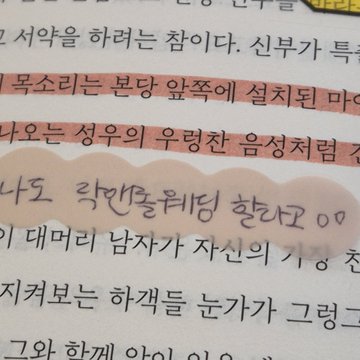 고 서약을 하려는 참이다. 신부가 특
목소리는 본당 앞쪽에 설치된 마
나오는 성우의 우렁찬 음성처럼
나도 락앤롤웨딩 할라고 ㅇㅇ
이 대머리 남자가 자신의 가장 친
지켜보는 하객들 눈가가 그렁그
그와 함께